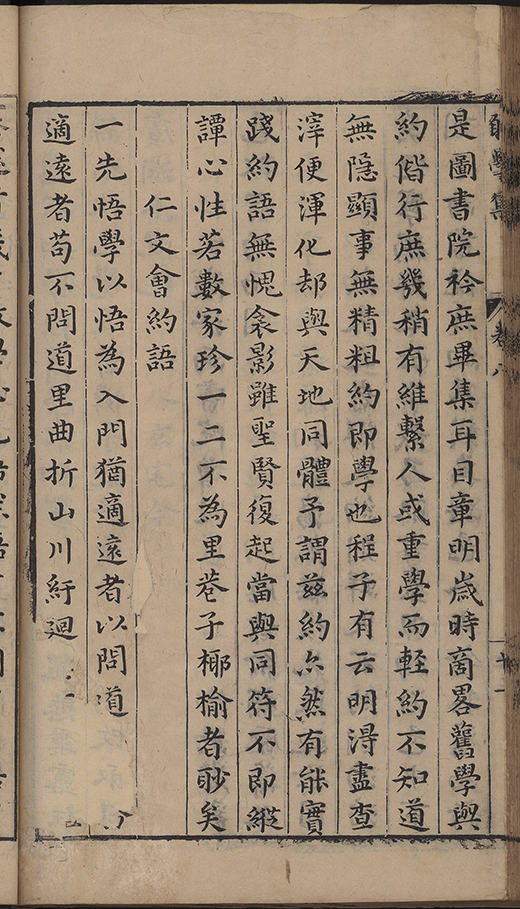 學集
卷六
十一
是圖書院衿庶畢集耳目章明歲時啇畧舊學與
約偕行庶㡬稍有維繫人或重學而輕約不知道
無隐顯事無精粗約即學也程子有云明淂盡查
滓便渾化却與天地同體予謂兹約亦然有能實
踐約語無愧衾影雖聖賢復起當與同符不即縱
譚心性若數家珍一二不為里巷子揶揄者眇矣
仁文會約語
一先悟學以悟為入門猶適逺者以問道
適逺者苟不問道里曲折山川紆迴